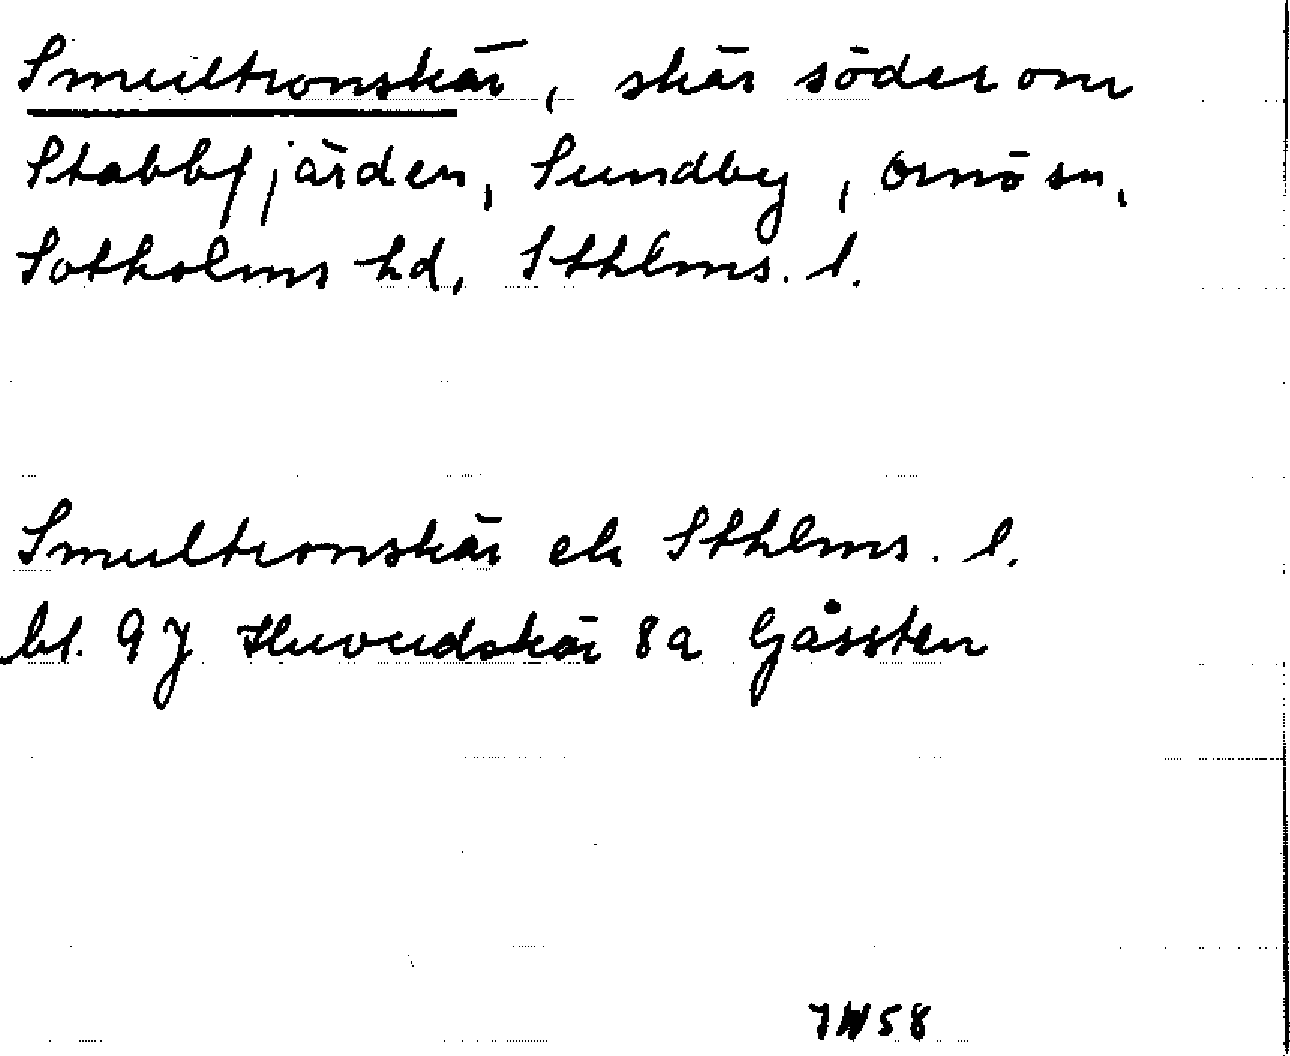 Smultronskär, skär söder om
Stabbfjärden, Sundby, Ornö sn,
Sotholms hd, Sthlms. l.
Smultronskär ek Sthlms. l.
bl. 9J Huvudskär 8a Gåssten
JW58